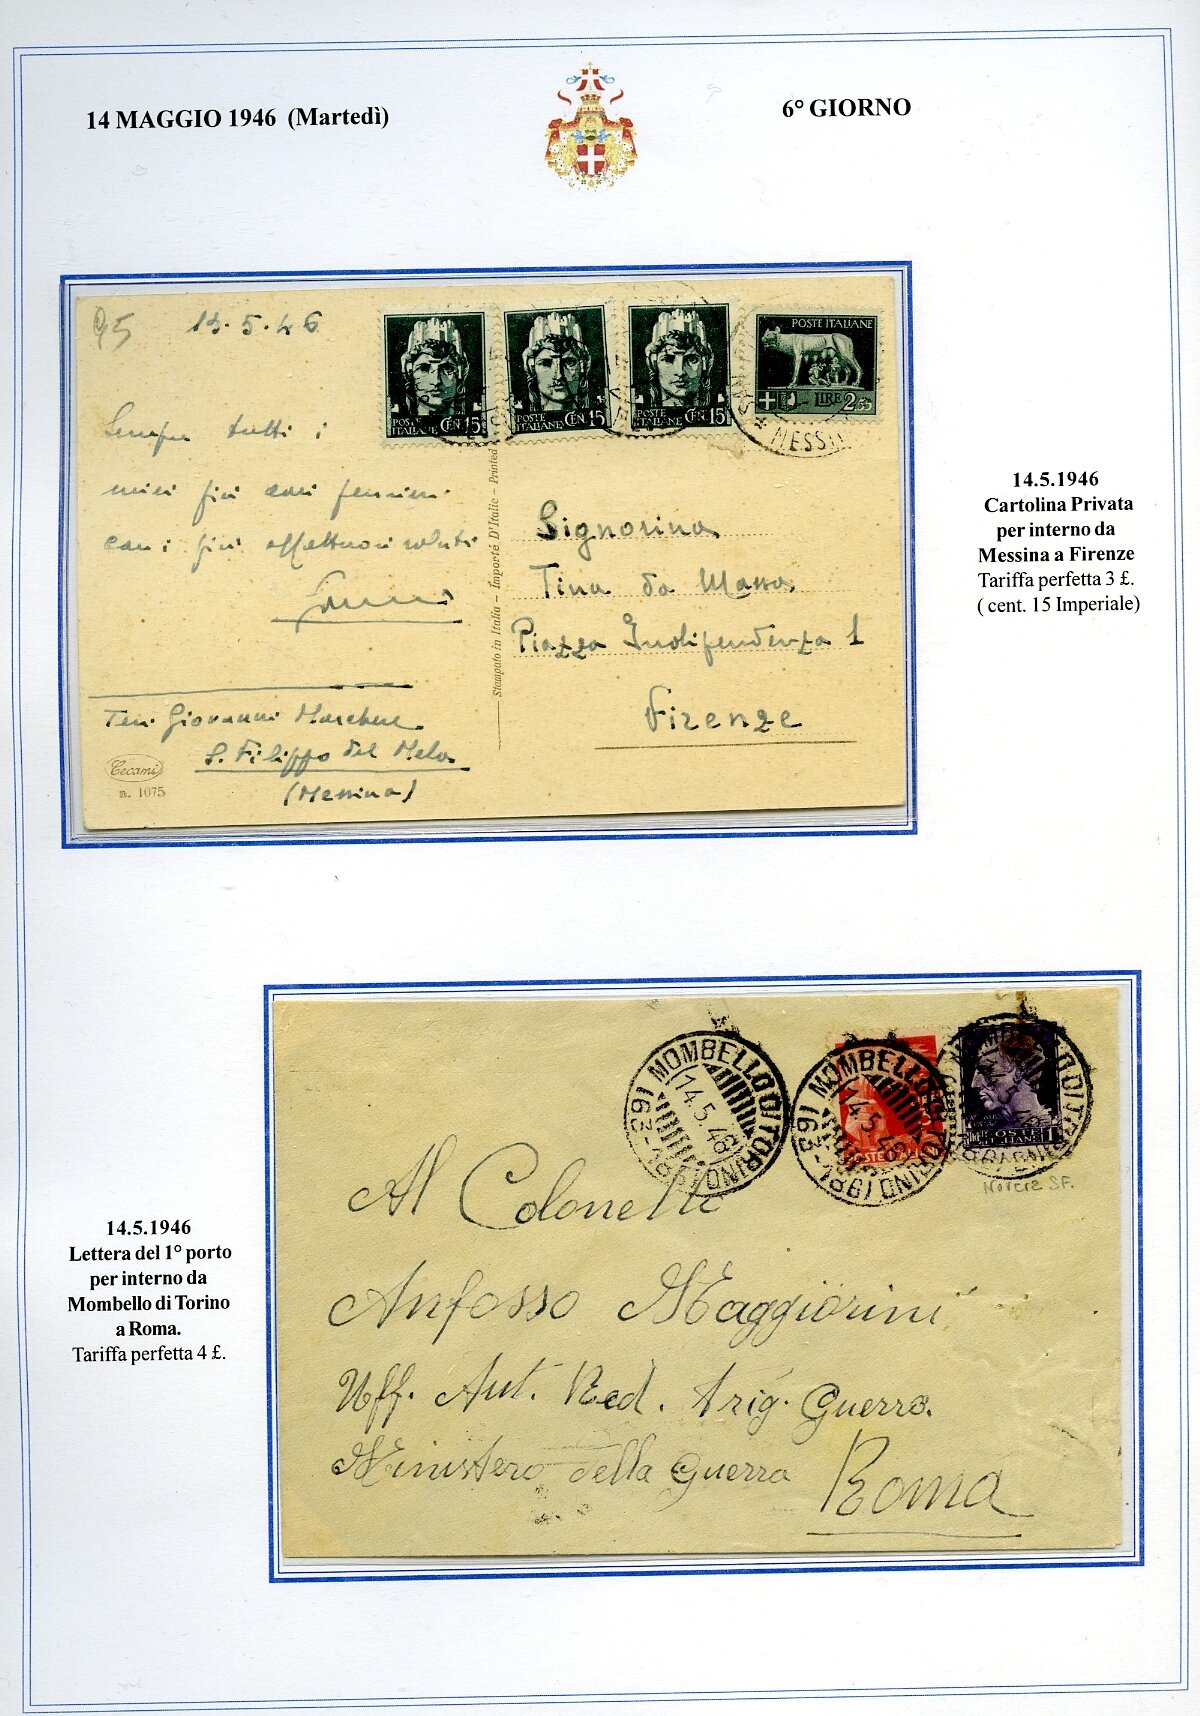 14 MAGGIO 1946 (Martedì)
6° GIORNO
95 13.5.46
POSTE ITALIANE CEN.15
POSTE ITALIANE CEN.15
POSTE ITALIANE CEN.15
POSTE ITALIANE
LIRE 2,55
MESSIN
Sempre tutti i
miei più cari pensieri
con i più affettuosi saluti
Stampato in Italia – Importé D'Italie – Printed
Signorina
Tina da Massa
Piazza Indipendenza 1
Firenze
Ten. Giovanni Marchese
S. Filippo del Mela
(Messina)
Cecami
n. 1075
14.5.1946
Cartolina Privata
per interno da
Messina a Firenze
Tariffa perfetta 3 £.
( cent. 15 Imperiale)
MOMBELLO DI TORINO (93-186)
14.5.46
MOMBELLO DI TORINO (93-186)
14.5.46
POSTE ITALIANE
Al Colonello
Anfosso Maggiorini
Uff. Aut. Red. Prig. Guerra.
Ministero della Guerra Roma
14.5.1946
Lettera del 1° porto
per interno da
Mombello di Torino
a Roma.
Tariffa perfetta 4 £.